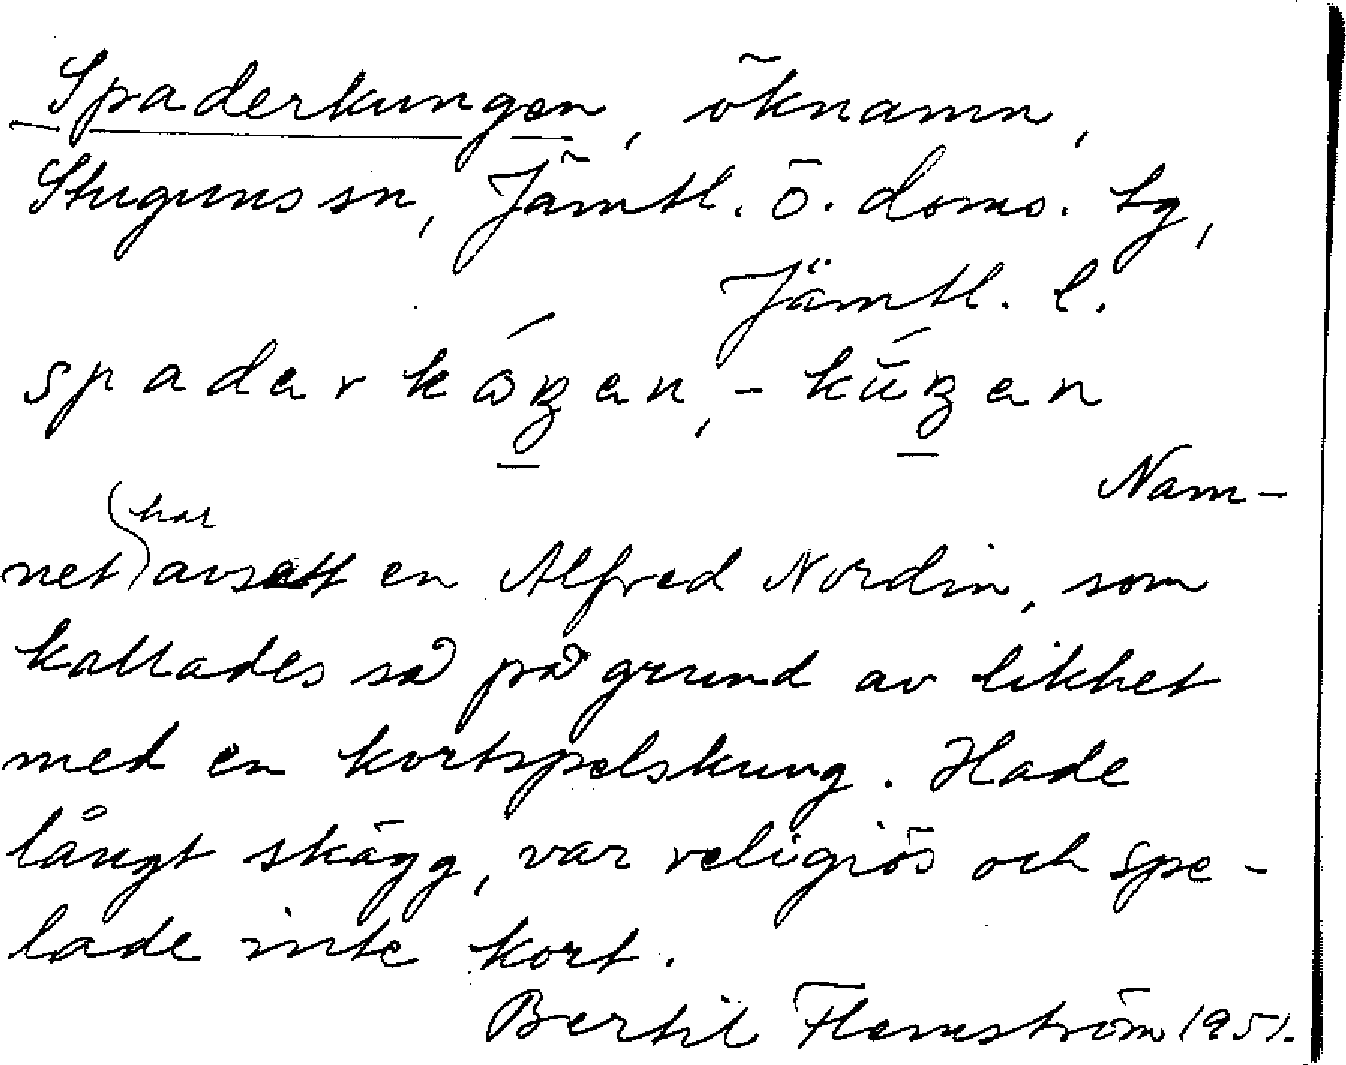 Spaderkungen, öknamn,
Stuguns sn, Jämtl. ö. doms. tg,
Jämtl. l.
Nam-
net har avsett en Alfred Nordin, som
kallades så på grund av likhet
med en kortspelskung. Hade
långt skägg, var religiös och spe-
lade inte kort.
Bertil Flemström 1951.